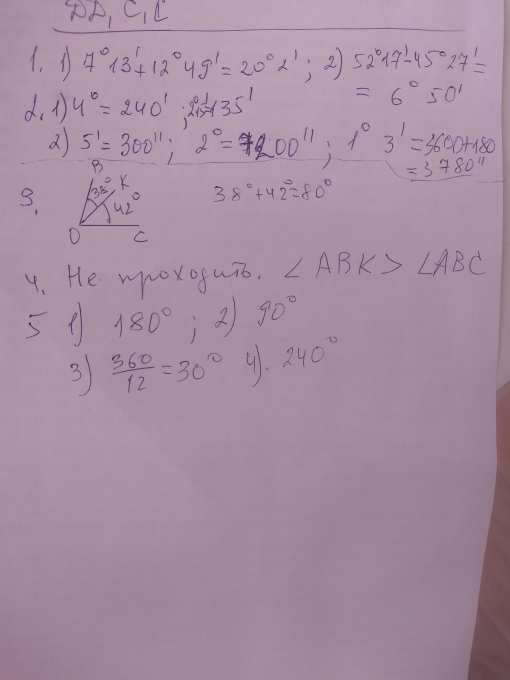 DD, C, L
1. 1) 7°13' + 12°49' = 20°2' ; 2) 52°17' - 45°27' =
= 6° 50'
2. 1) 4° = 240' ; 135'
2) 5' = 300'' ; 2° = 7200'' ; 1° 3' = 3600 + 180
= 3780''
3. B 38° K 42° O C 38° + 42° = 80°
4. Не проходить. ∠ABK > ∠ABC
5 1) 180° ; 2) 90°
3) 360/12 = 30° 4). 240°